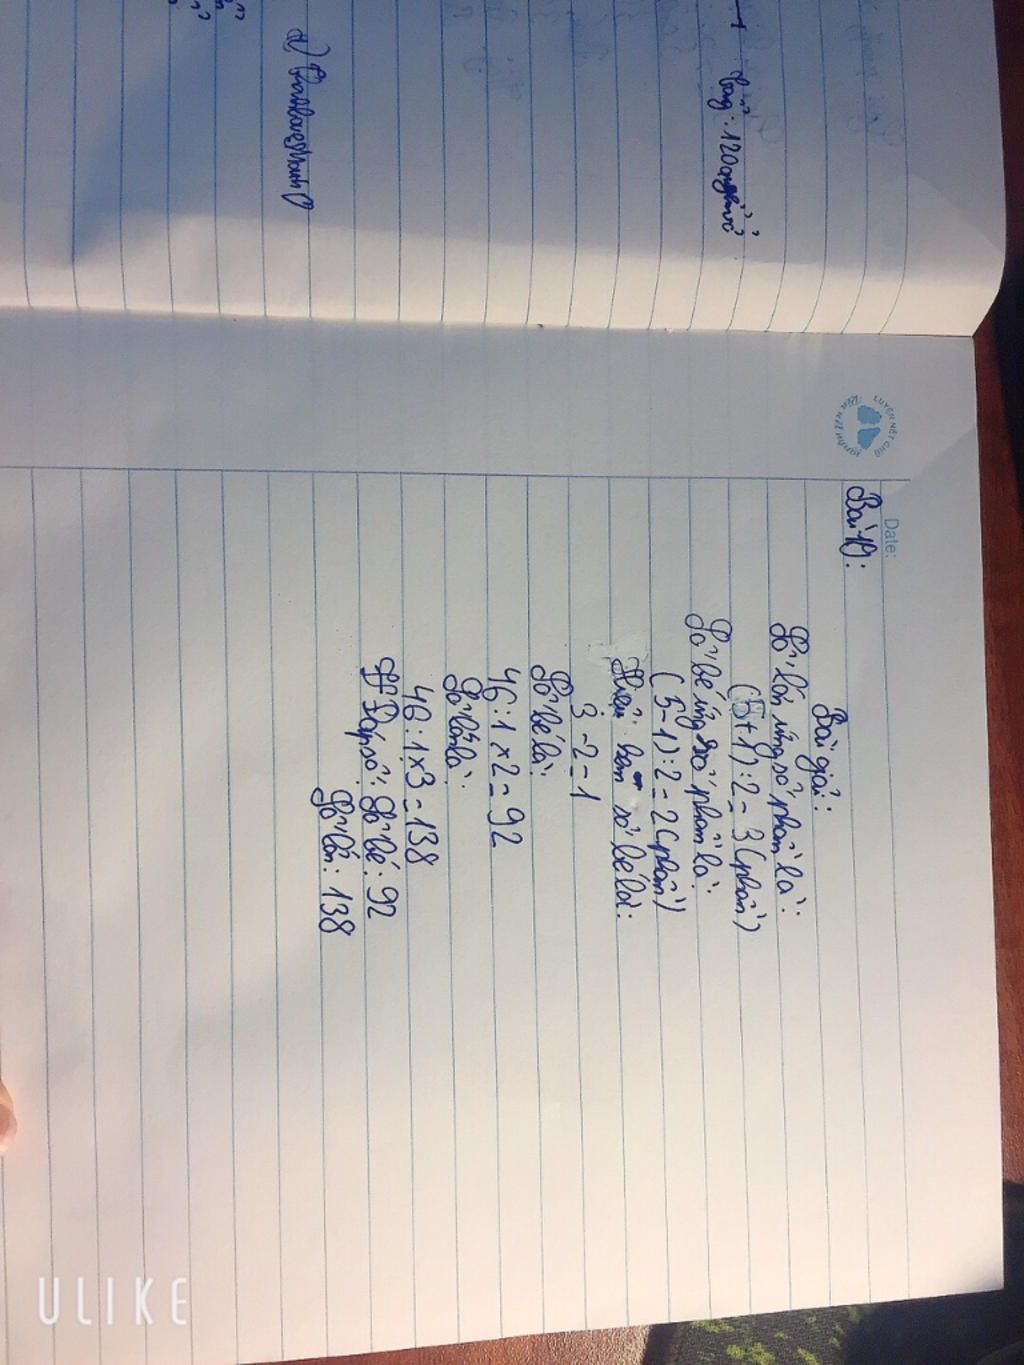 Bài 10:
Bài giải:
Số lớn ứng số phần là:
(5+1):2=3(phần)
Số bé ứng số phần là:
(5-1):2=2(phần)
Hiệu hơn số bé là:
3-2=1
Số bé là:
46:1×2=92
Số lớn là:
46:1×3=138
Đáp số: Số bé: 92
Số lớn: 138
Date:
LUYỆN NÉT CHỮ
ULIKE